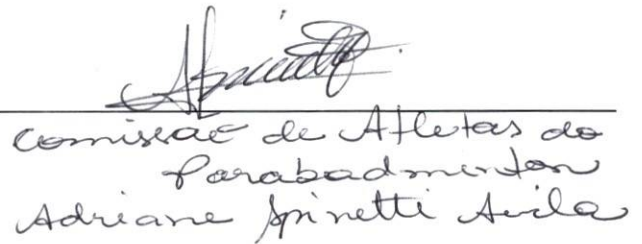 Comissão de Atletas do
Parabadminton
Adriane Spinetti Avila